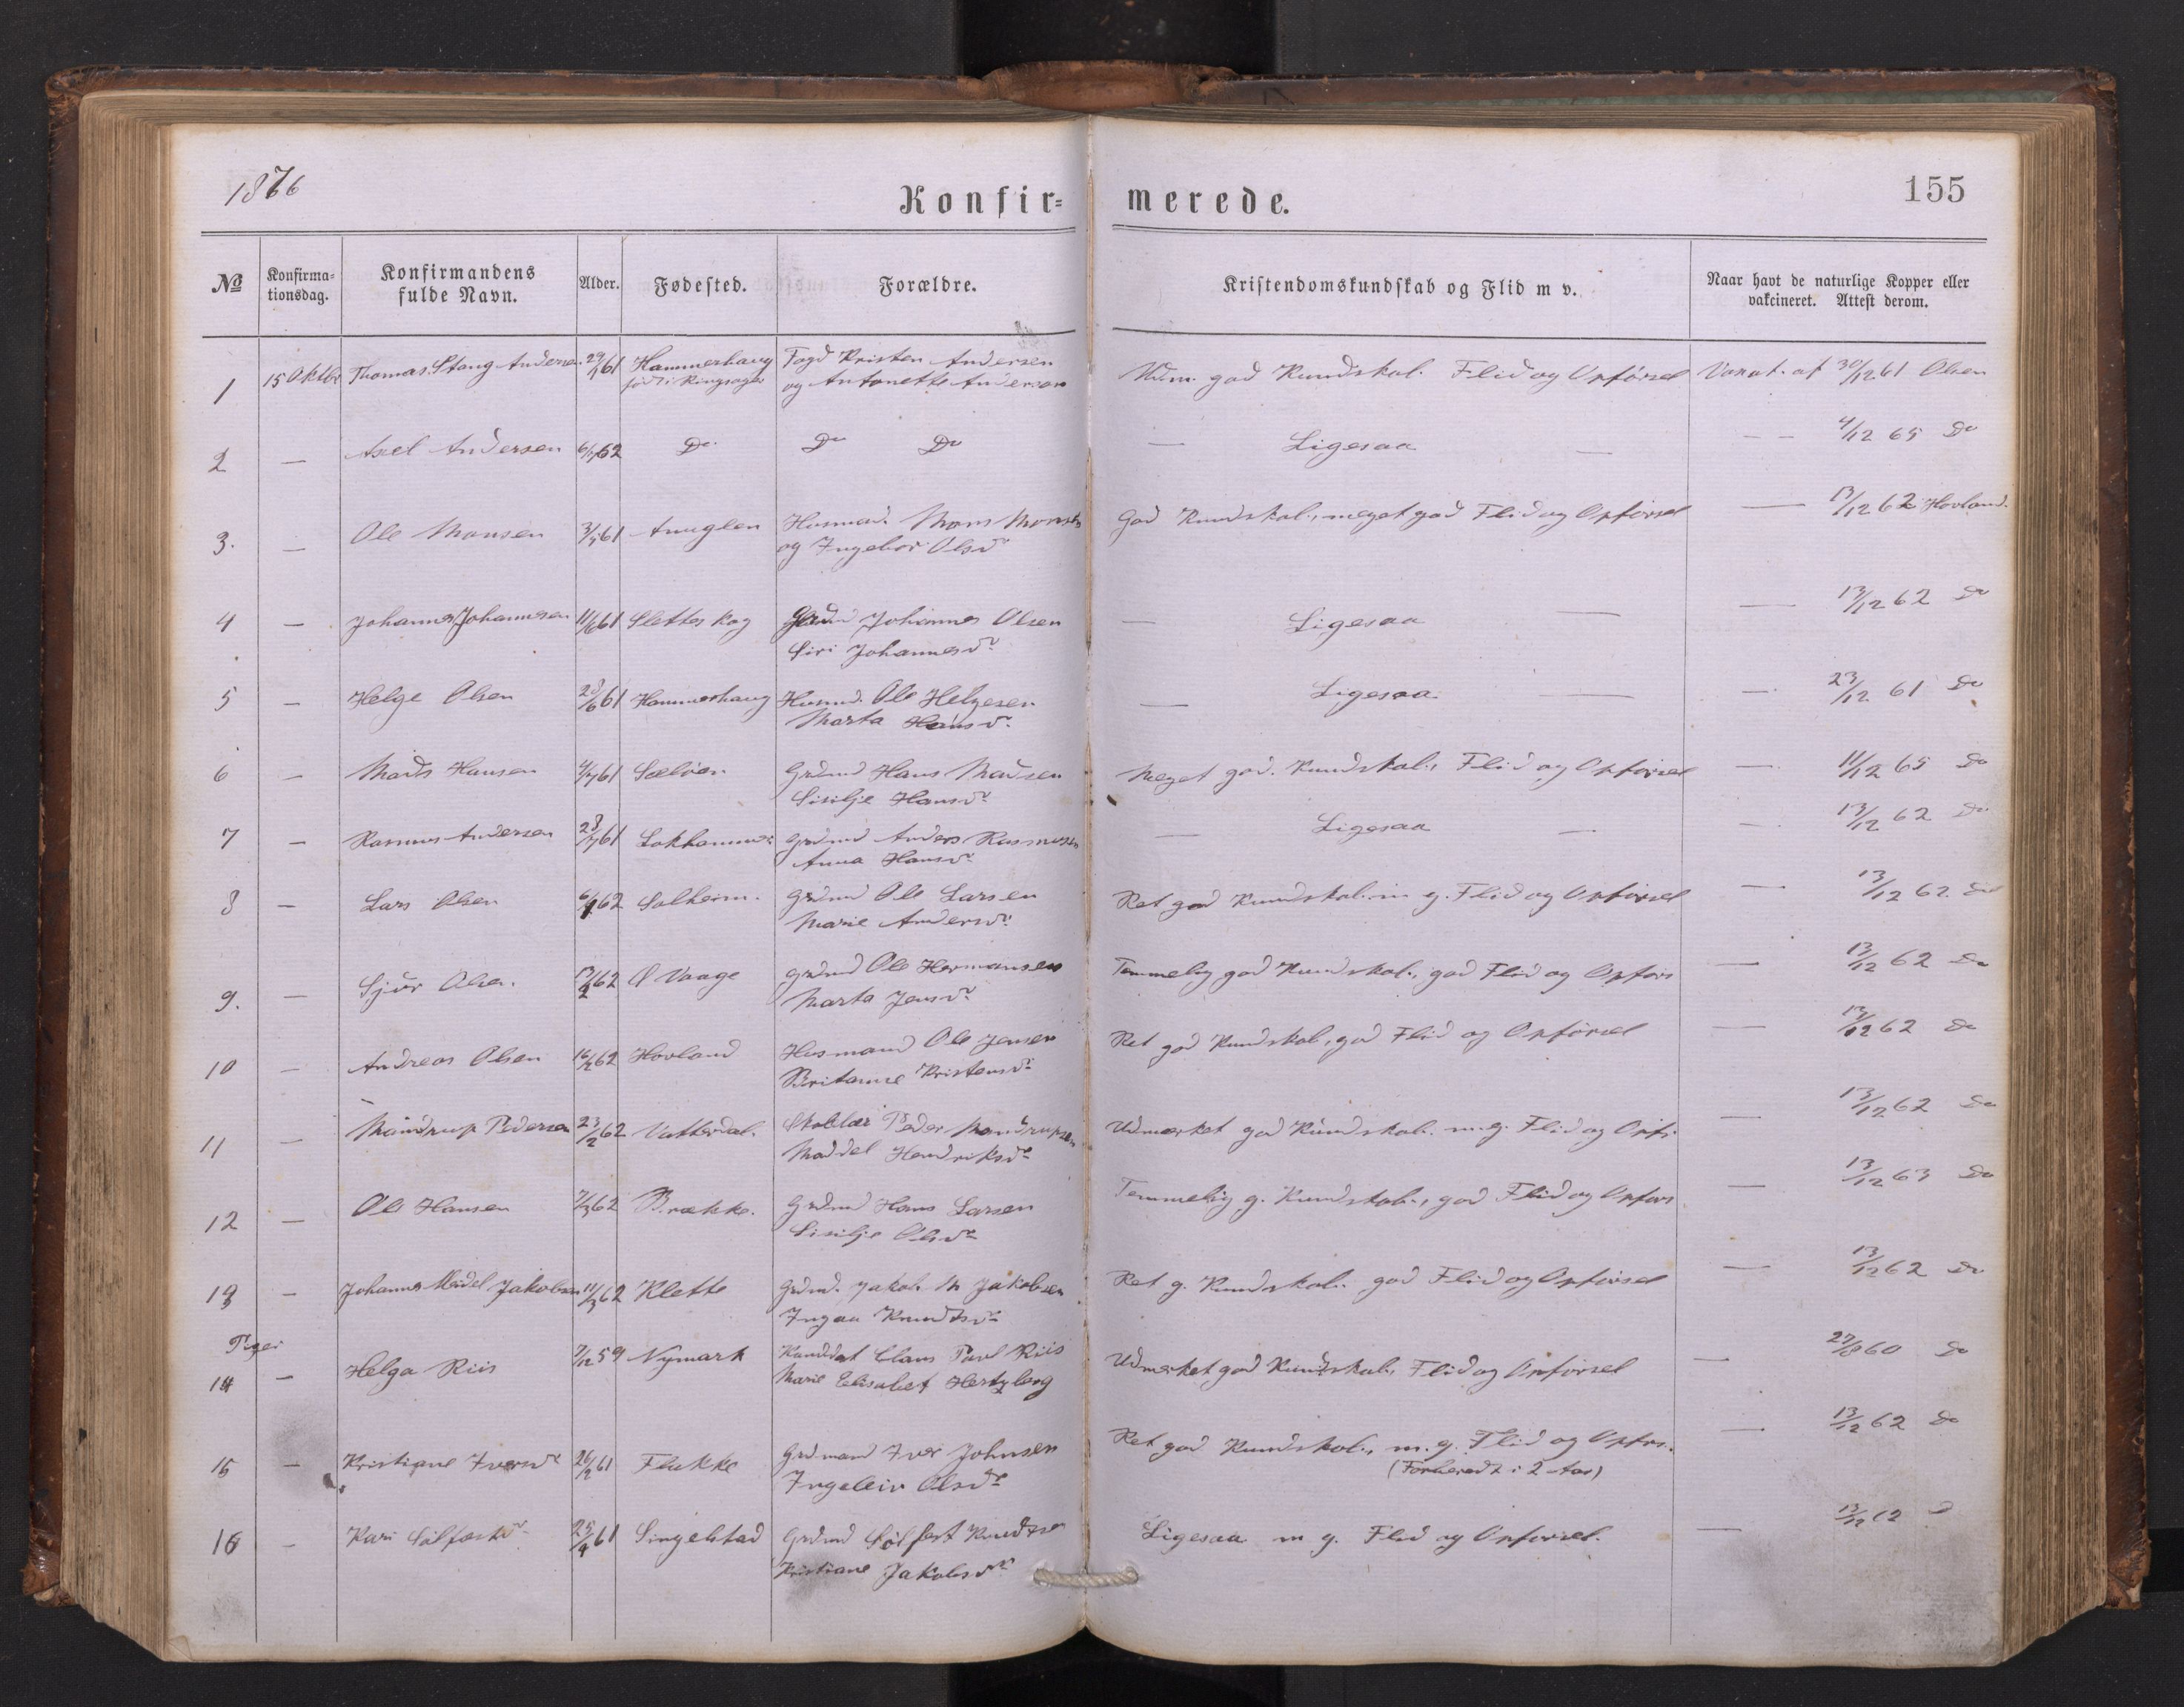 1876
Konfir=
merede.
155
№
Konfirma=
tionsdag.
Konfirmandens
fulde Navn.
Alder.
Fødested.
Forældre.
Kristendomskundskab og Flid m v.
Naar havt de naturlige Kopper eller
vakcineret. Attest derom.
1 15 Oktbr Thomas Stang Andersen 61 Hammerhaug Fogd Kristen Andersen Udm. god Kundskab. Flid og Opførsel Vaxat. af 30/12 61 Olsen
født i Ringsager og Antonette Andersen
2 — Axel Andersen 62 Do Do Do — Ligesaa — — — 4/12 65 Do
3. — Ole Monsen 61 Husmd. Mons Monsen God Kundskab., meget god Flid og Opførsel — 13/12 62 Hovland.
og Ingebor Olsdr
4 — Johannes Johannesen 11/6 61 Sletteskog Grdmd Johannes Olsen — Ligesaa — — 13/12 62 Do
Siri Johannesdr
5 — Helge Olsen 28/6 61 Hammerhaug Husmd. Ole Helgesen — Ligesaa — — 23/12 61 Do
Marta Hansdr.
6 — Mads Hansen 4/7 61 Sæløen Grdmd Hans Madsen Meget god. Kundskab., Flid og Opførsel — 11/12 65 Do
Sisilje Hansdr
7 — Rasmus Andersen 28/7 61 Lokhammer Grdmd Anders Rasmussen — Ligesaa — — 13/12 62 Do
Anna Hansdr
8 — Lars Olsen 62 Solheim. Grdmd Ole Larsen Ret god Kundskab. m g. Flid og Opførsel — 13/12 62. Do
Marie Andersdr
9. — Sjur Olsen. 13/2 62 Ø Vaage Grdmd Ole Hermansen Temmelig god Kundskab., god Flid og Opførs — 13/12 62 Do
Marta Jensdr
10 — Andreas Olsen 16/2 62 Hovland Husmand Ole Jensen Ret god Kundskab., god Flid og Opførsel — 13/12 62 Do
Britanne Kristensdr
11 — Mandrup Pedersen 23/2 62 Vatterdal. Skolelær Peder Mandrupsen Udmærket god Kundskab. m.g. Flid og Opfs. — 13/12 62 Do
Maddel Hendriksdr
12 — Ole Hansen 7/3 62 Brække. Grdmd Hans Larsen Temmelig g. Kundskab., god Flid og Opførs — 13/12 63 Do
Sisilje Olsdr
13 — Johannes Meidel Jakobsen 11/3 62 Klette Grdmd. Jakob M Jakobsen Ret g. Kundskab. god Flid og Opførsel — 13/12 62 Do
Ingaa Knudtsdr
Piger
14 — Helga Riis 7/12 59 Nymark Kandidat Claus Pavl Riis Udmærket god Kundskab., Flid og Opførsel — 27/8 60 Do
Marie Elisabet Hertzberg
15 — Kristiane Iversdr 26/2 61 Flække Grdmand Iver Johnsen Ret god Kundskab., m. g. Flid og Opførs. — 13/12 62 Do
Ingeleiv Olsdr (Forberedt i 2 Aar)
16 — Kari Sølfæstdr 25/4 61 Singelstad Grdmd Sølfest Knudtsen Ligesaa m g. Flid og Opførsel. — 13/12 62 D
Kristiane Jakobsdr